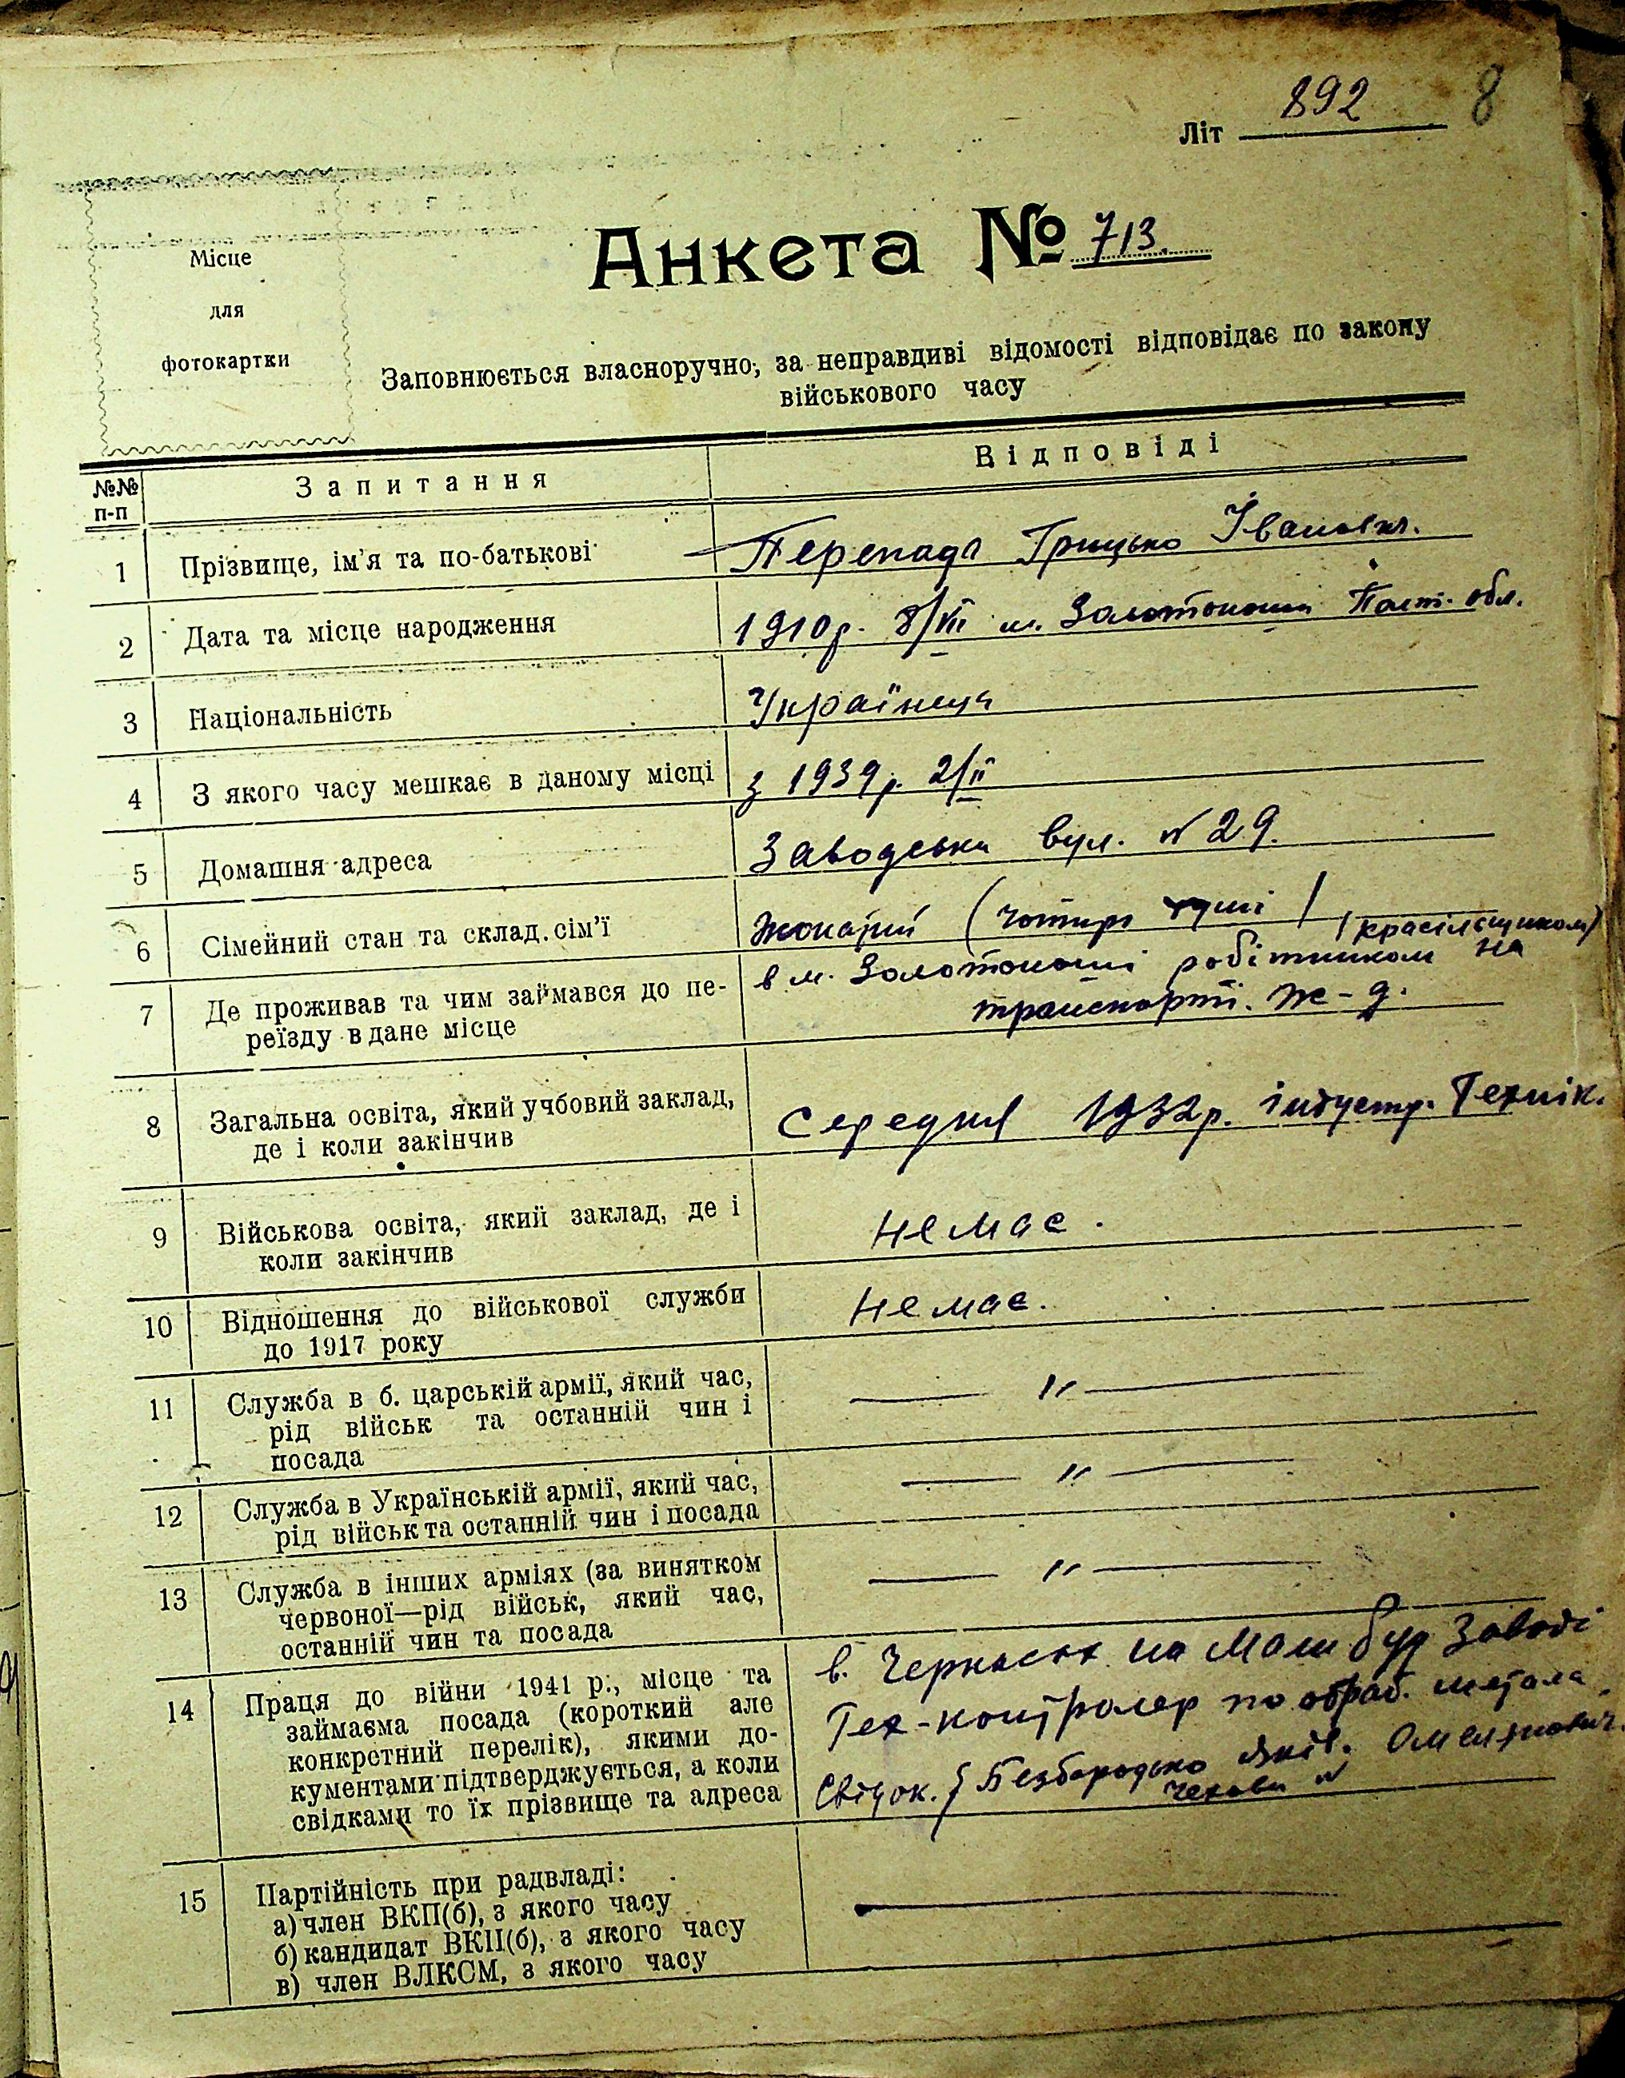 892 8
Літ
Місце
для
фотокартки
Анкета № 713.
Заповнюється власноручно, за неправдиві відомості відповідає по закону
військового часу
№№
п-п
Запитання
Відповіді
1 Прізвище, ім'я та по-батькові
Перепада Грицько Іванович.
2 Дата та місце народження
1910р. 8/VII м. Золотоноша Полт. обл.
3 Національність
Українець
4 З якого часу мешкає в даному місці
з 1939р. 2/II
5 Домашня адреса
Заводська вул. N 29.
6 Сімейний стан та склад сім'ї
Жонатий (чотири душі)
7 Де проживав та чим займався до пе-
реїзду в дане місце
(красільщиком)
в м. Золотоноші робітником на
транспорті. ж-д.
8 Загальна освіта, який учбовий заклад,
де і коли закінчив
Середня 1932р. індустр. Технік.
9 Військова освіта, який заклад, де і
коли закінчив
Немає.
10 Відношення до військової служби
до 1917 року
Немає.
11 Служба в б. царській армії, який час,
рід військ та останній чин і
посада
— " —
12 Служба в Українській армії, який час,
рід військ та останній чин і посада
— " —
13 Служба в інших арміях (за винятком
червоної—рід військ, який час,
останній чин та посада
— " —
14 Праця до війни 1941 р., місце та
займаєма посада (короткий але
конкретний перелік), якими до-
кументами підтверджується, а коли
свідками то їх прізвище та адреса
в. Черкасах на Машбуд Заводі
Тех-контролер по обраб. метала
Свідок. { Безбородько Яків. Омелянович.
Чехова N
15 Партійність при радвладі:
а) член ВКП(б), з якого часу
б) кандидат ВКП(б), з якого часу
в) член ВЛКСМ, з якого часу
—